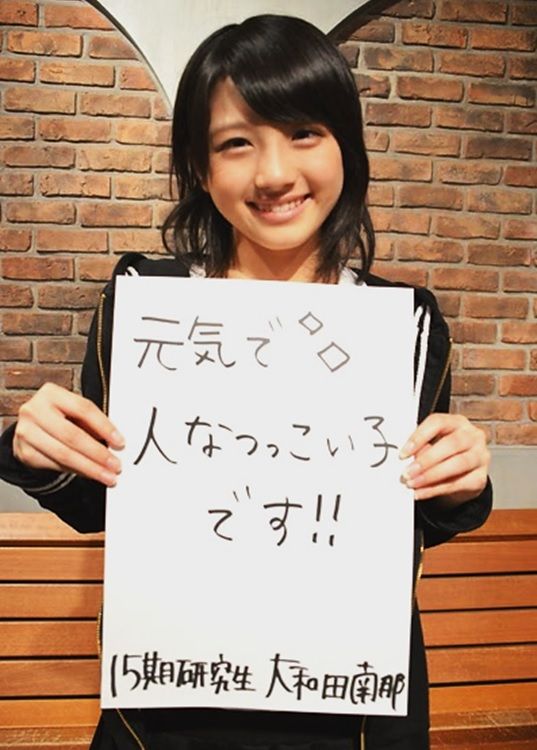 元気で◇◇
人なつっこい子
です!!
15期研究生 大和田南那